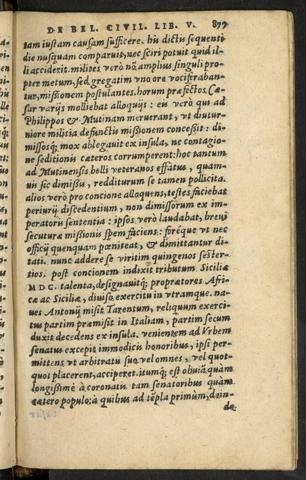 DE BEL. CIVIL. LIB. V. 899
tam iustam causam sufficere. his dictis sequenti
die nusquam comparuit, nec sciri potuit quid il-
li acciderit. milites verò nõ amplius singuli pro-
pter metum, sed gregatim vno ore vociferaban-
tur, missionem postulantes. horum præfectos Cæ-
sar varijs molliebat alloquijs: eis verò qui ad
Philippos & Mutinam meruerant, vt diutur-
niore militia defunctis missionem concessit: di-
missosq; mox ablegauit ex insula, ne contagio-
ne seditionis cæteros corrumperent: hoc tantum
ad Mutinensis belli veteranos effatus, quam-
uis sic dimissis, redditurum se tamen pollicita.
alios verò pro concione alloquens, testes faciebat
periurij discedentium, non dimissorum ex im-
peratoris sententia: ipsos verò laudabat, breui
secutura missionis spem faciens: foréque vt nec
officij quenquam pœniteat, & dimittantur di-
tati. nunc addere se viritim quingenos sester-
tios. post concionem indixit tributum Siciliæ
MDC. talenta, designauitq; prætores Afri-
cæ ac Siciliæ, diuiso exercitu in vtramque. na-
ues Antonij misit Tarentum, reliquum exerci-
tus partim præmisit in Italiam, partim secum
duxit decedens ex insula. venientem ad Vrbem
senatus excepit immodicis honoribus, ipsi per-
mittens vt arbitratu suo vel omnes, vel quot-
quot placerent, acciperet. itumq; est obuiã quàm
longissimè à coronatis tam senatoribus quàm
cætero populo: à quibus ad tẽpla primùm, dein-
de